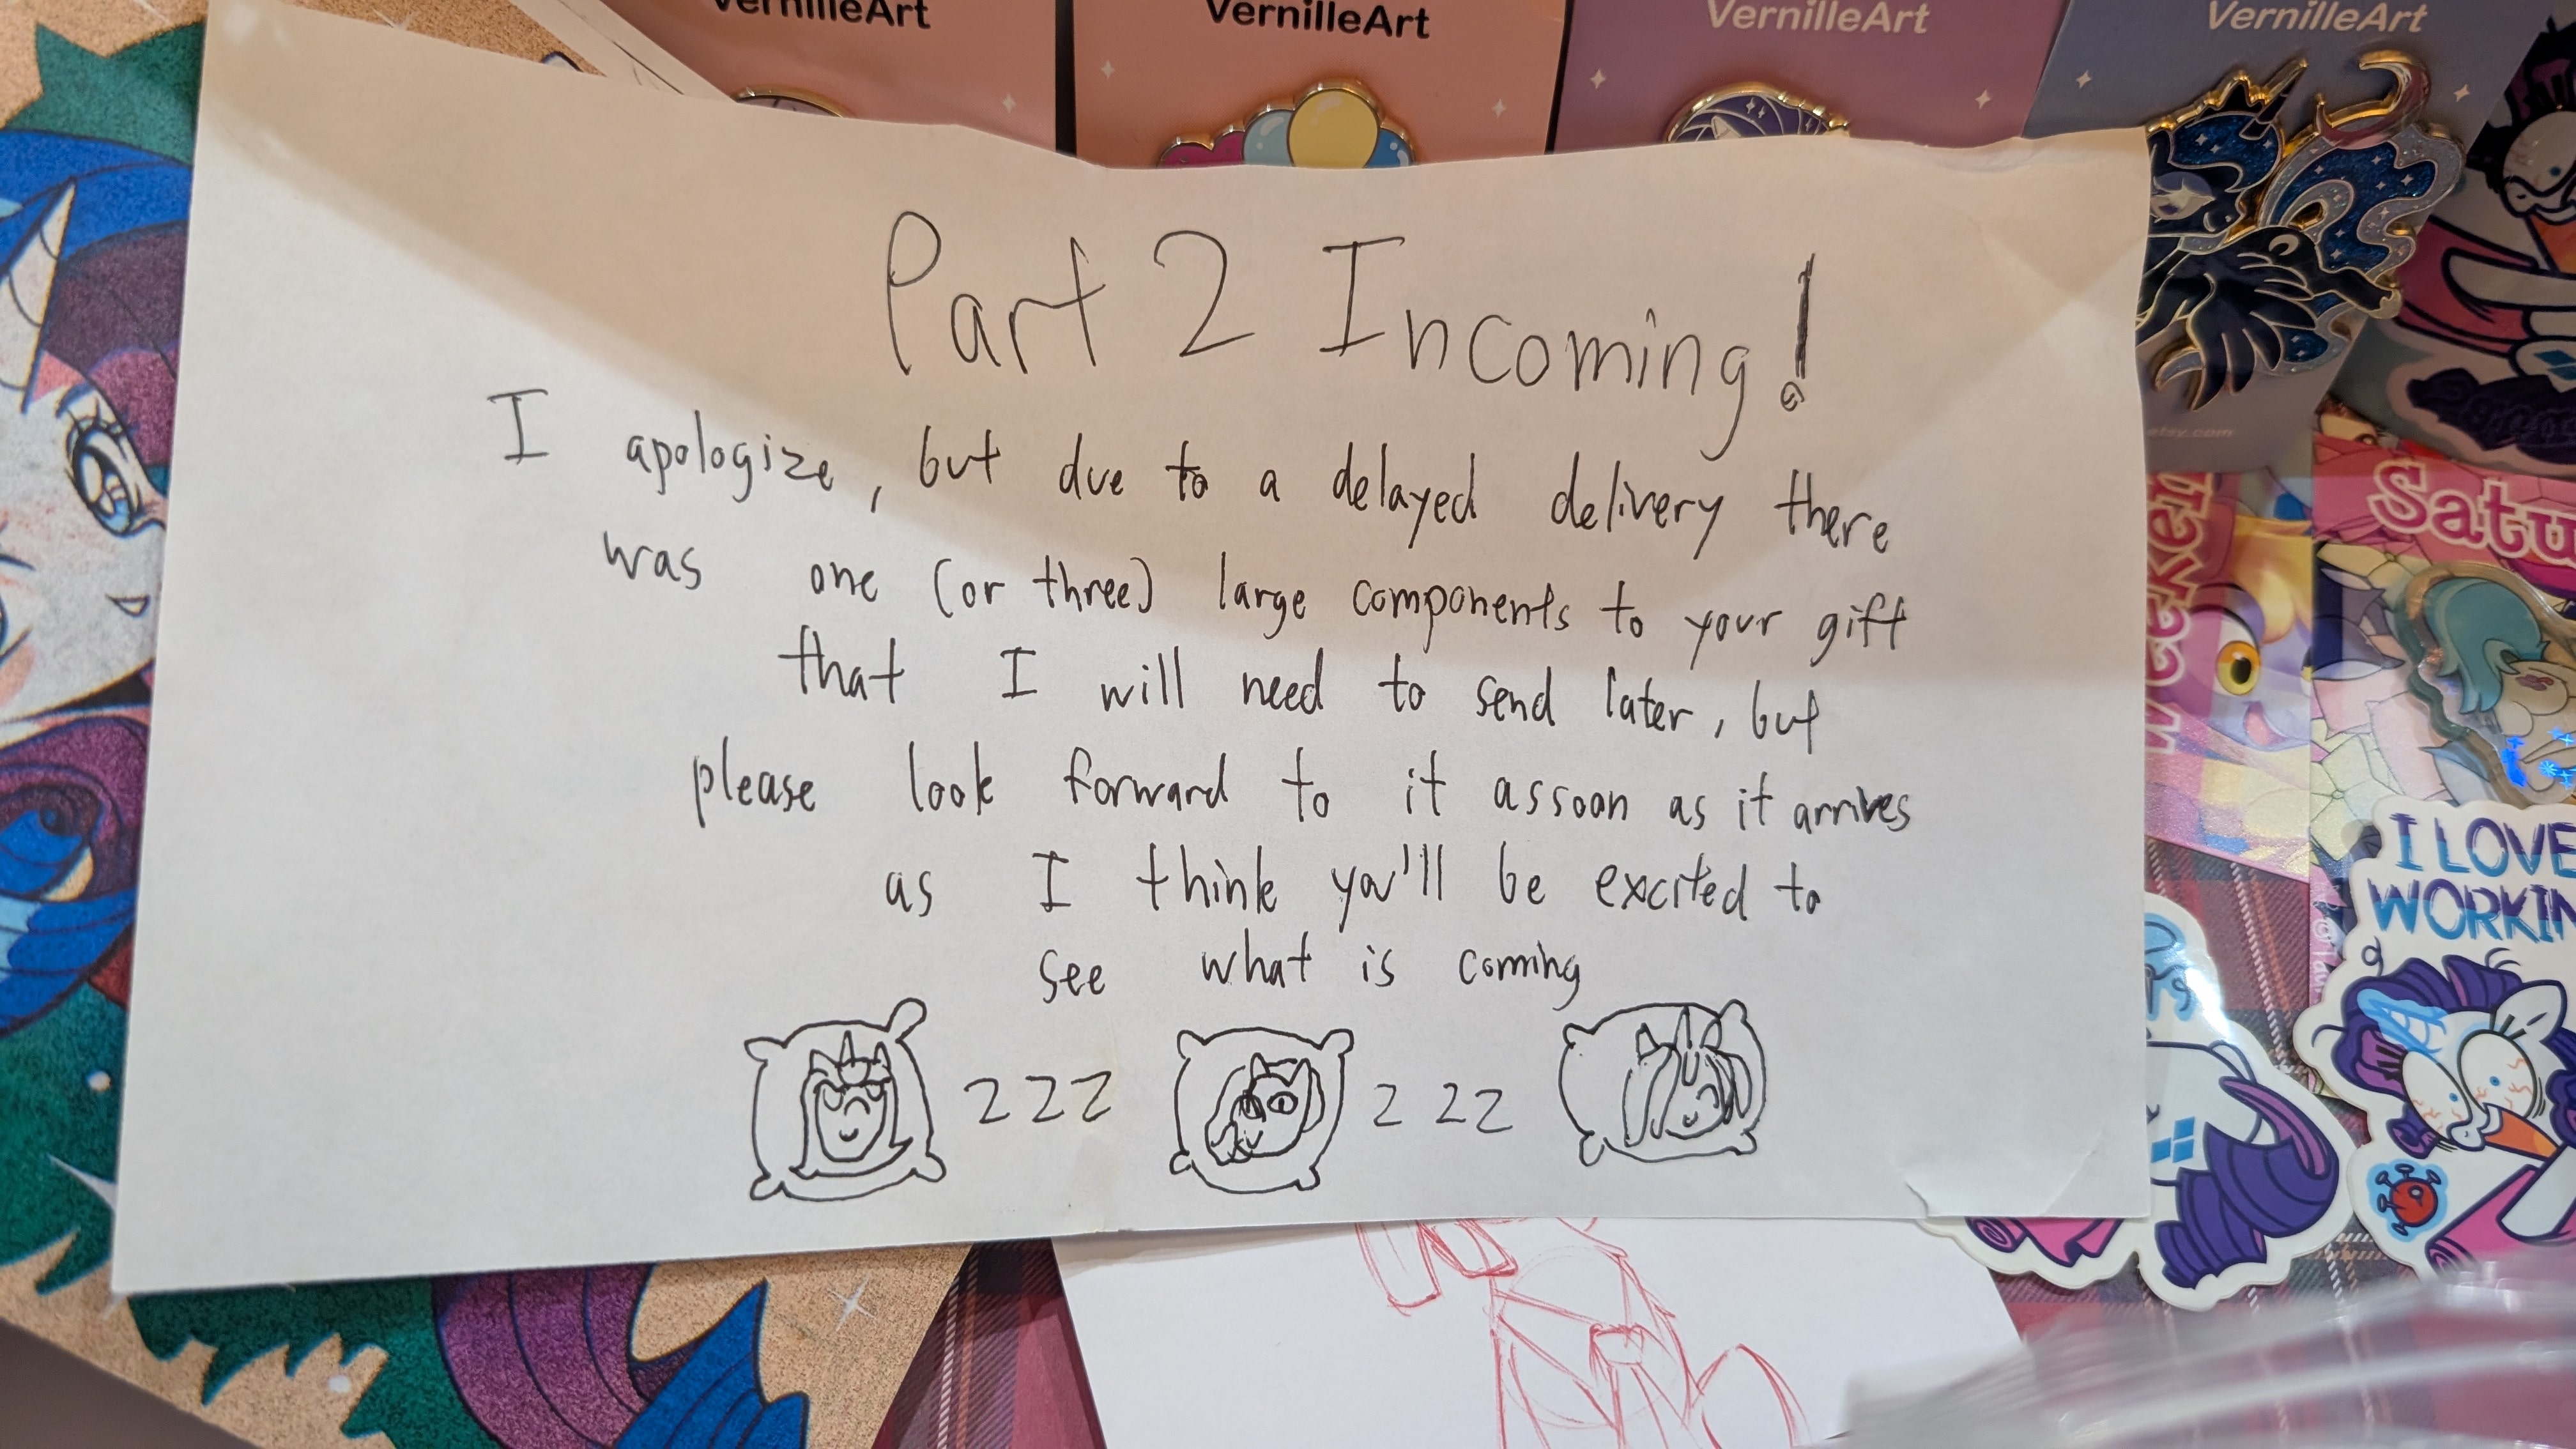 VernilleArt
VernilleArt
VernilleArt
VernilleArt
Part 2 Incoming!
I apologize, but due to a delayed delivery there
was one (or three) large components to your gift
that I will need to send later, but
please look forward to it assoon as it arrives
as I think you'll be excited to
see what is coming
zzz zzz
etsy.com
Satu
I LOVE
WORKIN